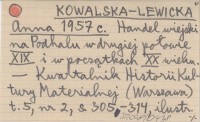 KOWALSKA-LEWICKA
Anna 1957 c. Handel wiejski
na Podhalu w drugiej połowie
XIX i w początkach XX wieku
— Kwartalnik Historii Kul-
tury Materialnej (Warszawa)
t. 5, nr 2, s. 305-314, ilustr.